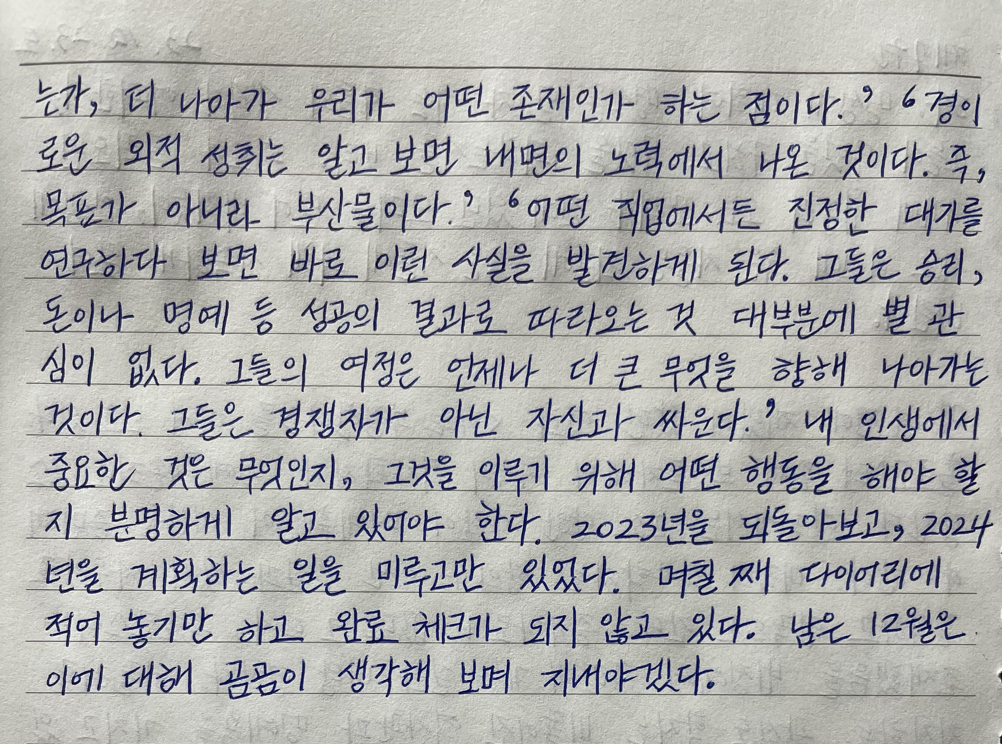 는가, 더 나아가 우리가 어떤 존재인가 하는 점이다.’ ‘경이
로운 외적 성취는 알고 보면 내면의 노력에서 나온 것이다. 즉,
목표가 아니라 부산물이다.’ ‘어떤 직업에서든 진정한 대가를
연구하다 보면 바로 이런 사실을 발견하게 된다. 그들은 승리,
돈이나 명예 등 성공의 결과로 따라오는 것 대부분에 별 관
심이 없다. 그들의 여정은 언제나 더 큰 무엇을 향해 나아가는
것이다. 그들은 경쟁자가 아닌 자신과 싸운다.’ 내 인생에서
중요한 것은 무엇인지, 그것을 이루기 위해 어떤 행동을 해야 할
지 분명하게 알고 있어야 한다. 2023년을 되돌아보고, 2024
년을 계획하는 일을 미루고만 있었다. 며칠 째 다이어리에
적어 놓기만 하고 완료 체크가 되지 않고 있다. 남은 12월은
이에 대해 곰곰이 생각해 보며 지내야겠다.